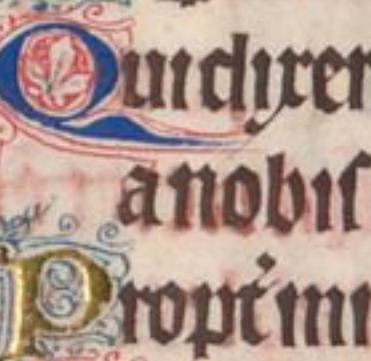 Qui dixer
a nobis
Propt̄ im